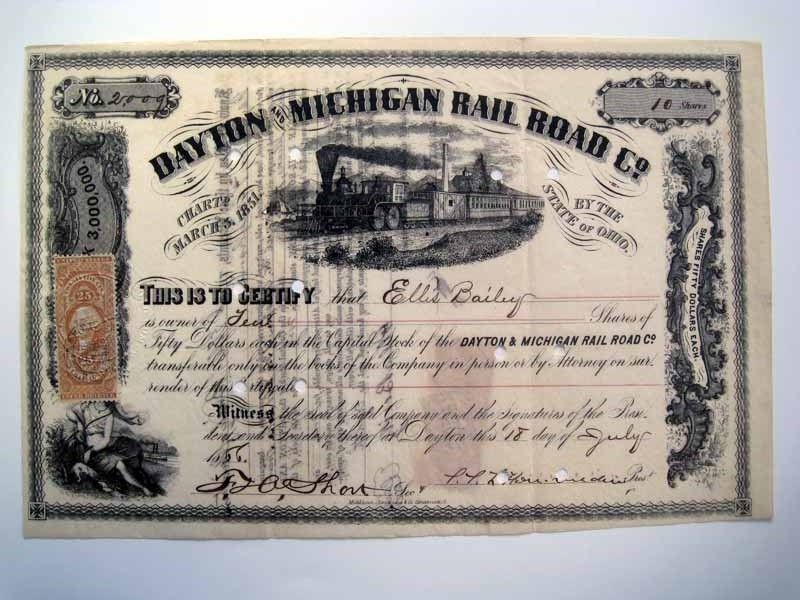 No. 2,009
10 Shares
DAYTON AND MICHIGAN RAIL ROAD Co.
CHARTD. MARCH 5, 1851.
BY THE STATE OF OHIO.
3,000,000.
SHARES FIFTY DOLLARS EACH.
25
THIS IS TO CERTIFY that Ellis Bailey
is owner of Ten Shares of
Fifty Dollars each in the Capital Stock of the DAYTON & MICHIGAN RAIL ROAD Co
transferable only on the books of the Company in person or by Attorney on sur-
render of this Certificate.
Witness the Seal of said Company and the signatures of the Presi-
dent and Secretary thereof at Dayton this 18 day of July
1866.
Short Secy
Prest